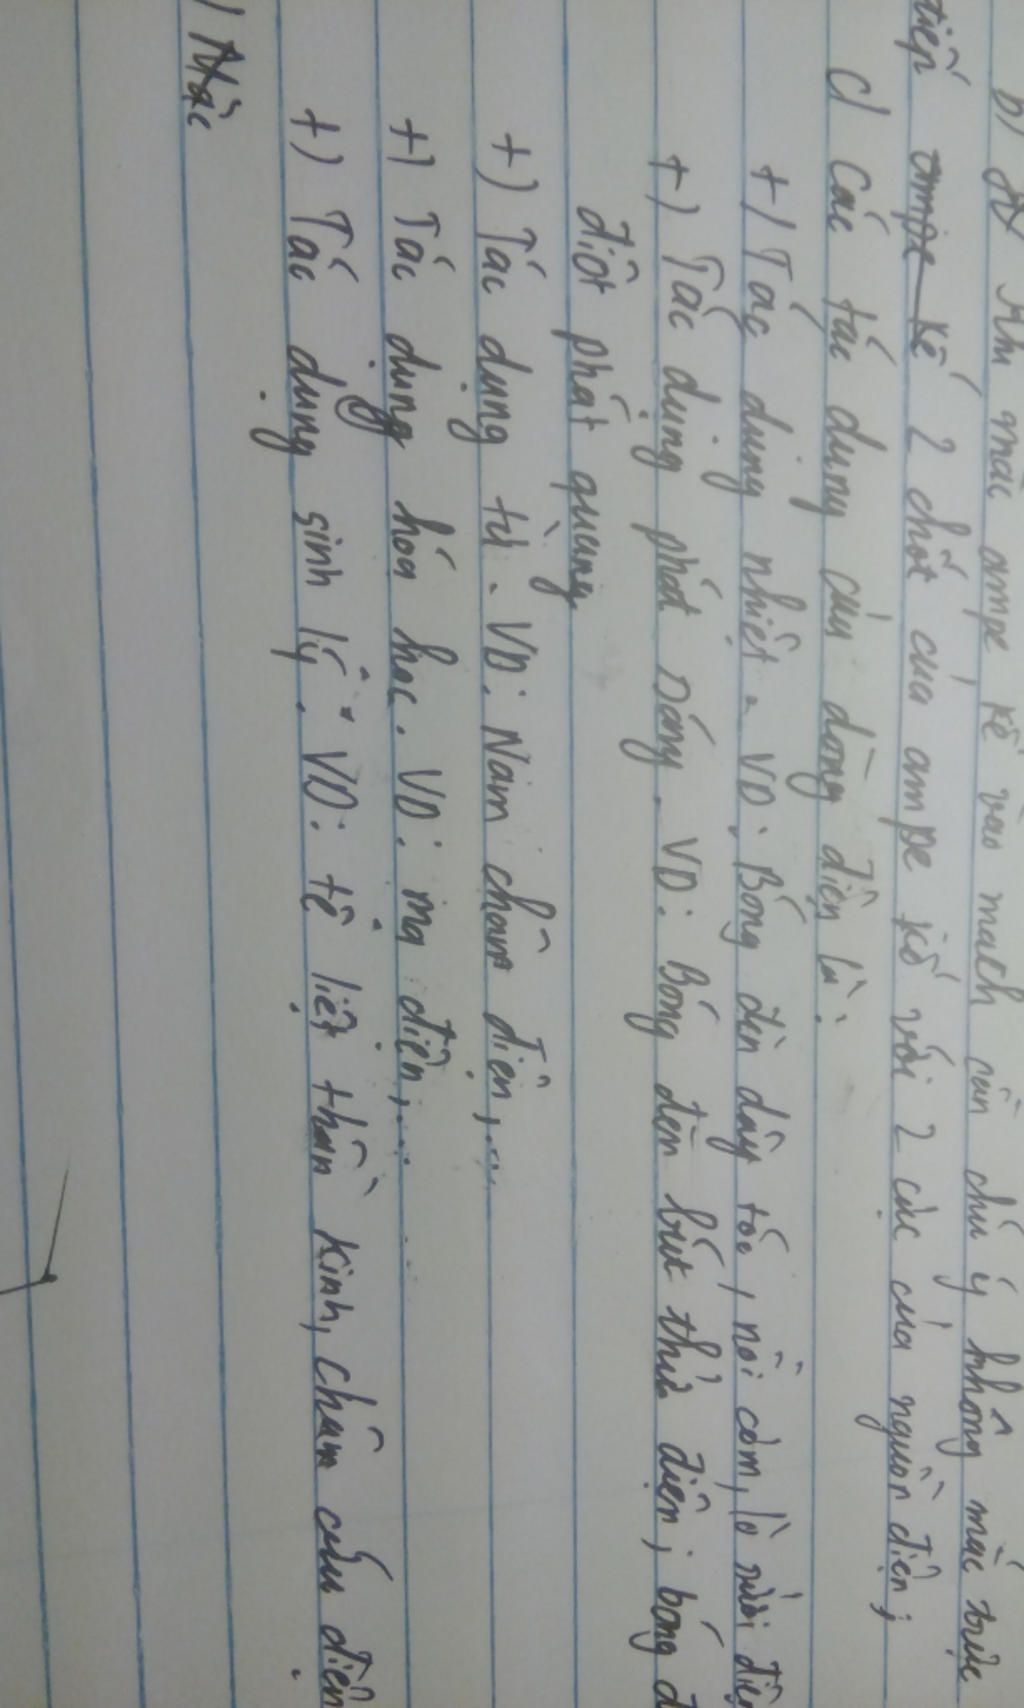 b) Khi mắc ampe kế vào mạch cần chú ý không mắc trực
tiếp ampe kế 2 chốt của ampe kế với 2 cực của nguồn điện;
c) Các tác dụng của dòng điện là:
+) Tác dụng nhiệt. VD: Bóng đèn dây tóc, nồi cơm, lò sưởi điện
+) Tác dụng phát sáng. VD: Bóng đèn bút thử điện; bóng đ
điốt phát quang
+) Tác dụng từ. VD: Nam châm điện,...
+) Tác dụng hóa học. VD: mạ điện,...
+) Tác dụng sinh lý. VD: tê liệt thần kinh, châm cứu điện.
) Mắc